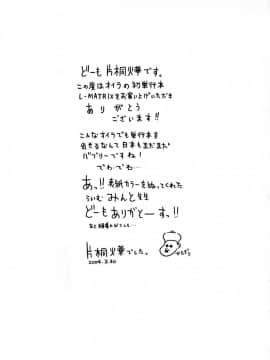 どーも片桐火華です。
この度はオイラの初単行本
L-MATRIXをお買い上げいただき
ありがとう
ございます!!
こんなオイラでも単行本を
出せるなんて日本もまだまだ
バブリーですね!
でわでわ…
あっ!!表紙カラーをぬってくれた
らいむみんと先生
どーもありがとーすっ!!
片桐火華でした。